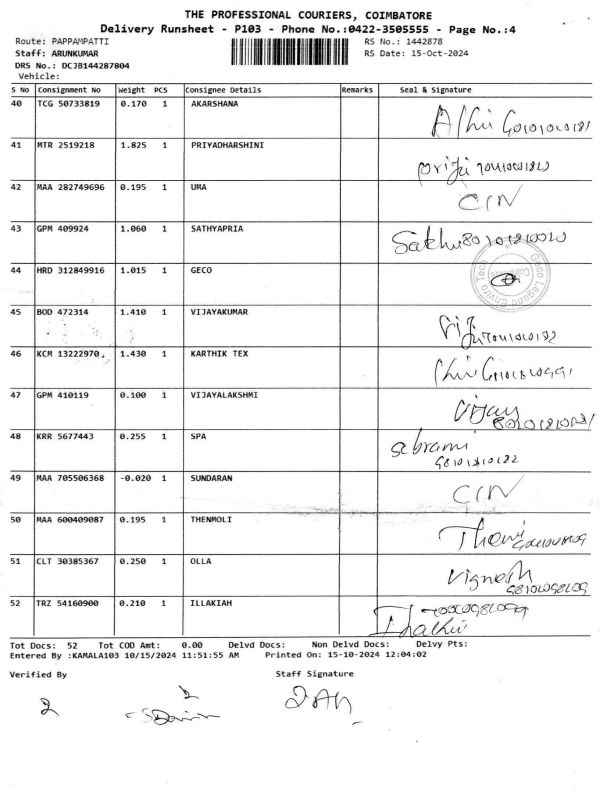 THE PROFESSIONAL COURIERS, COIMBATORE
Delivery Runsheet - P103 - Phone No.:0422-3505555 - Page No.:4
Route: PAPPAMPATTI RS No.: 1442878
Staff: ARUNKUMAR RS Date: 15-Oct-2024
DRS No.: DCJB144287804
Vehicle:
S No Consignment No Weight PCS Consignee Details Remarks Seal & Signature
40 TCG 50733819 0.170 1 AKARSHANA
41 MTR 2519218 1.825 1 PRIYADHARSHINI
42 MAA 282749696 0.195 1 UMA CIN
43 GPM 409924 1.060 1 SATHYAPRIA
44 HRD 312849916 1.015 1 GECO Geco Legend Enviro Tech
45 BOD 472314 1.410 1 VIJAYAKUMAR
46 KCM 13222970 1.430 1 KARTHIK TEX
47 GPM 410119 0.100 1 VIJAYALAKSHMI Vijay
48 KRR 5677443 0.255 1 SPA
49 MAA 705506368 -0.020 1 SUNDARAN CIN
50 MAA 600409087 0.195 1 THENMOLI
51 CLT 30385367 0.250 1 OLLA Vignesh
52 TRZ 54160900 0.210 1 ILLAKIAH
Tot Docs: 52 Tot COD Amt: 0.00 Delvd Docs: Non Delvd Docs: Delvy Pts:
Entered By :KAMALA103 10/15/2024 11:51:55 AM Printed On: 15-10-2024 12:04:02
Verified By Staff Signature